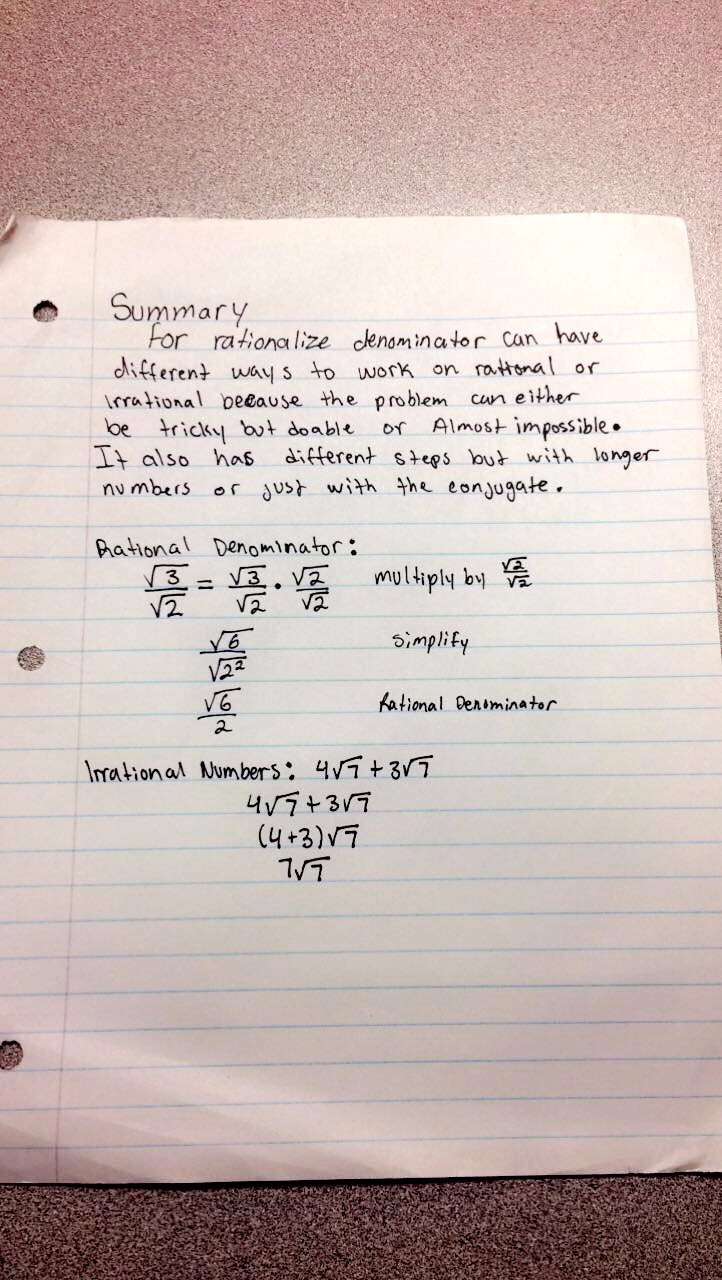 Summary
for rationalize denominator can have
different ways to work on rational or
irrational because the problem can either
be tricky but doable or Almost impossible.
It also has different steps but with longer
numbers or just with the conjugate.
Rational Denominator:
√3/√2 = √3/√2 · √2/√2 multiply by √2/√2
√6/√2² simplify
√6/2 Rational Denominator
Irrational Numbers: 4√7 + 3√7
4√7 + 3√7
(4+3)√7
7√7